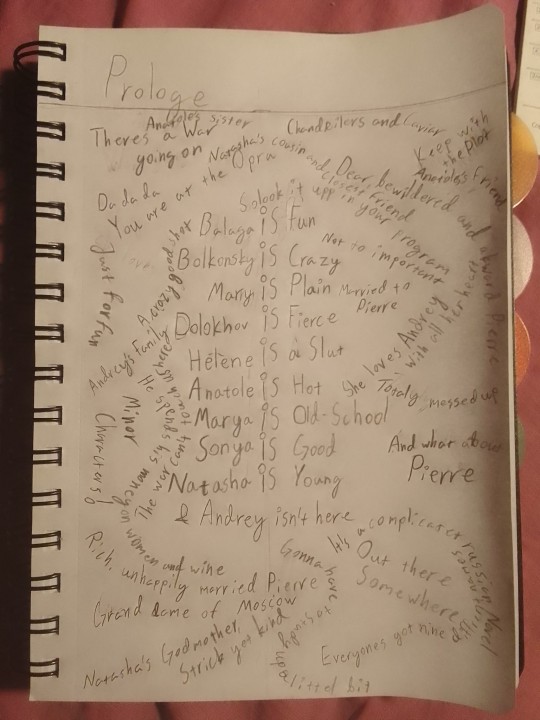 Prologe
Anatoles sister
There's a War
going on
Chandeilers and Caviar
Keep with
the Plot
Natasha's cousin and closest friend
Anatole's Friend
Da da da
You are at the Opra
Dear, bewildered and akward Pierre
So look it up in your Program
Balaga is Fun
Just for fun
A crazy good shot
Not to important
Bolkonsky is Crazy
Mary is Plain
Married to
Pierre
Dolokhov is Fierce
Andrey's Family
Hélène is a Slut
She loves Andrey
with all her heart
Anatole is Hot
Totaly messed up
Minor
Characters
He spends his money on women and wine
The war can't touch us here
Marya is Old-School
Sonya is Good
And what about
Pierre
Natasha is Young
& Andrey isn't here
It's a complicater russian Novel
Everyones got nine
Out there
Somewhere
Rich, unhappily married Pierre
Gonna have
Grand dame of Moscow
Natasha's Godmother,
Strick yet kind
littel bit